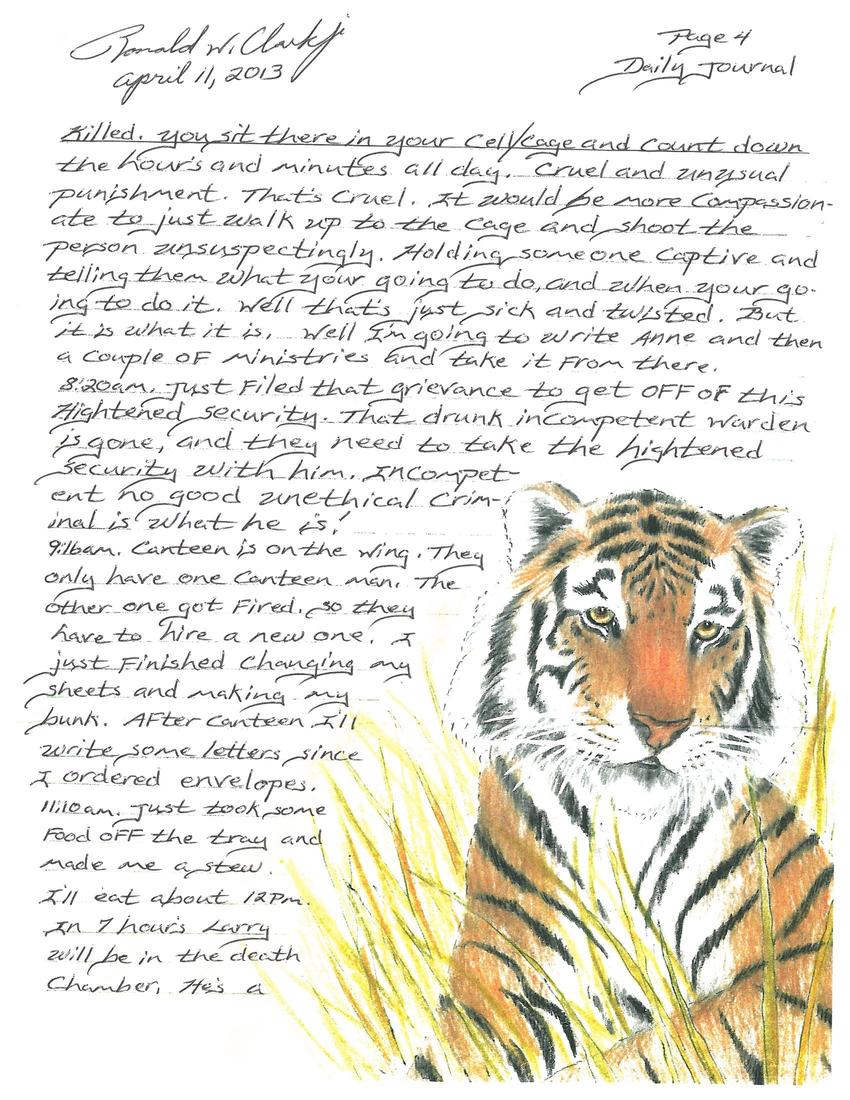 Ronald W. Clark jr
April 11, 2013
Page 4
Daily Journal
Killed. You sit there in your Cell/Cage and Count down
the hour's and minutes all day. Cruel and unusual
punishment. That's Cruel. It would be more Compassion-
ate to just walk up to the Cage and shoot the
person unsuspectingly. Holding someone Captive and
telling them what your going to do, and when your go-
ing to do it. Well that's just sick and twisted. But
it is what it is. Well I'm going to write Anne and then
a Couple of ministries and take it From there.
8:20am. Just Filed that grievance to get OFF of this
Hightened security. That drunk incompetent warden
is gone, and they need to take the hightened
security with him. Incompet-
ent no good unethical Crim-
inal is what he is!
9:16am. Canteen is on the wing. They
only have one Canteen man. The
other one got Fired. So they
have to hire a new one. I
just Finished Changing my
sheets and making my
bunk. AFter Canteen I'll
write some letters since
I ordered envelopes.
11:10am. Just took some
Food OFF the tray and
made me a stew.
I'll eat about 12Pm.
In 7 hour's Larry
will be in the death
Chamber, He's a